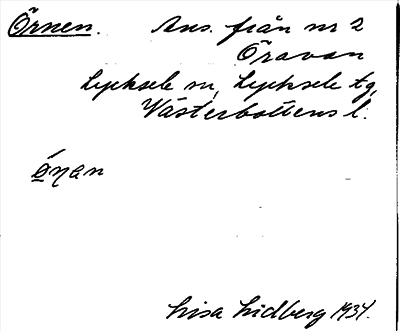 Örnen. Avs. från nr 2
Öravan
Lycksele sn, Lycksele tg,
Västerbottens l.
ö́ŋan
Lisa Lidberg 1934.